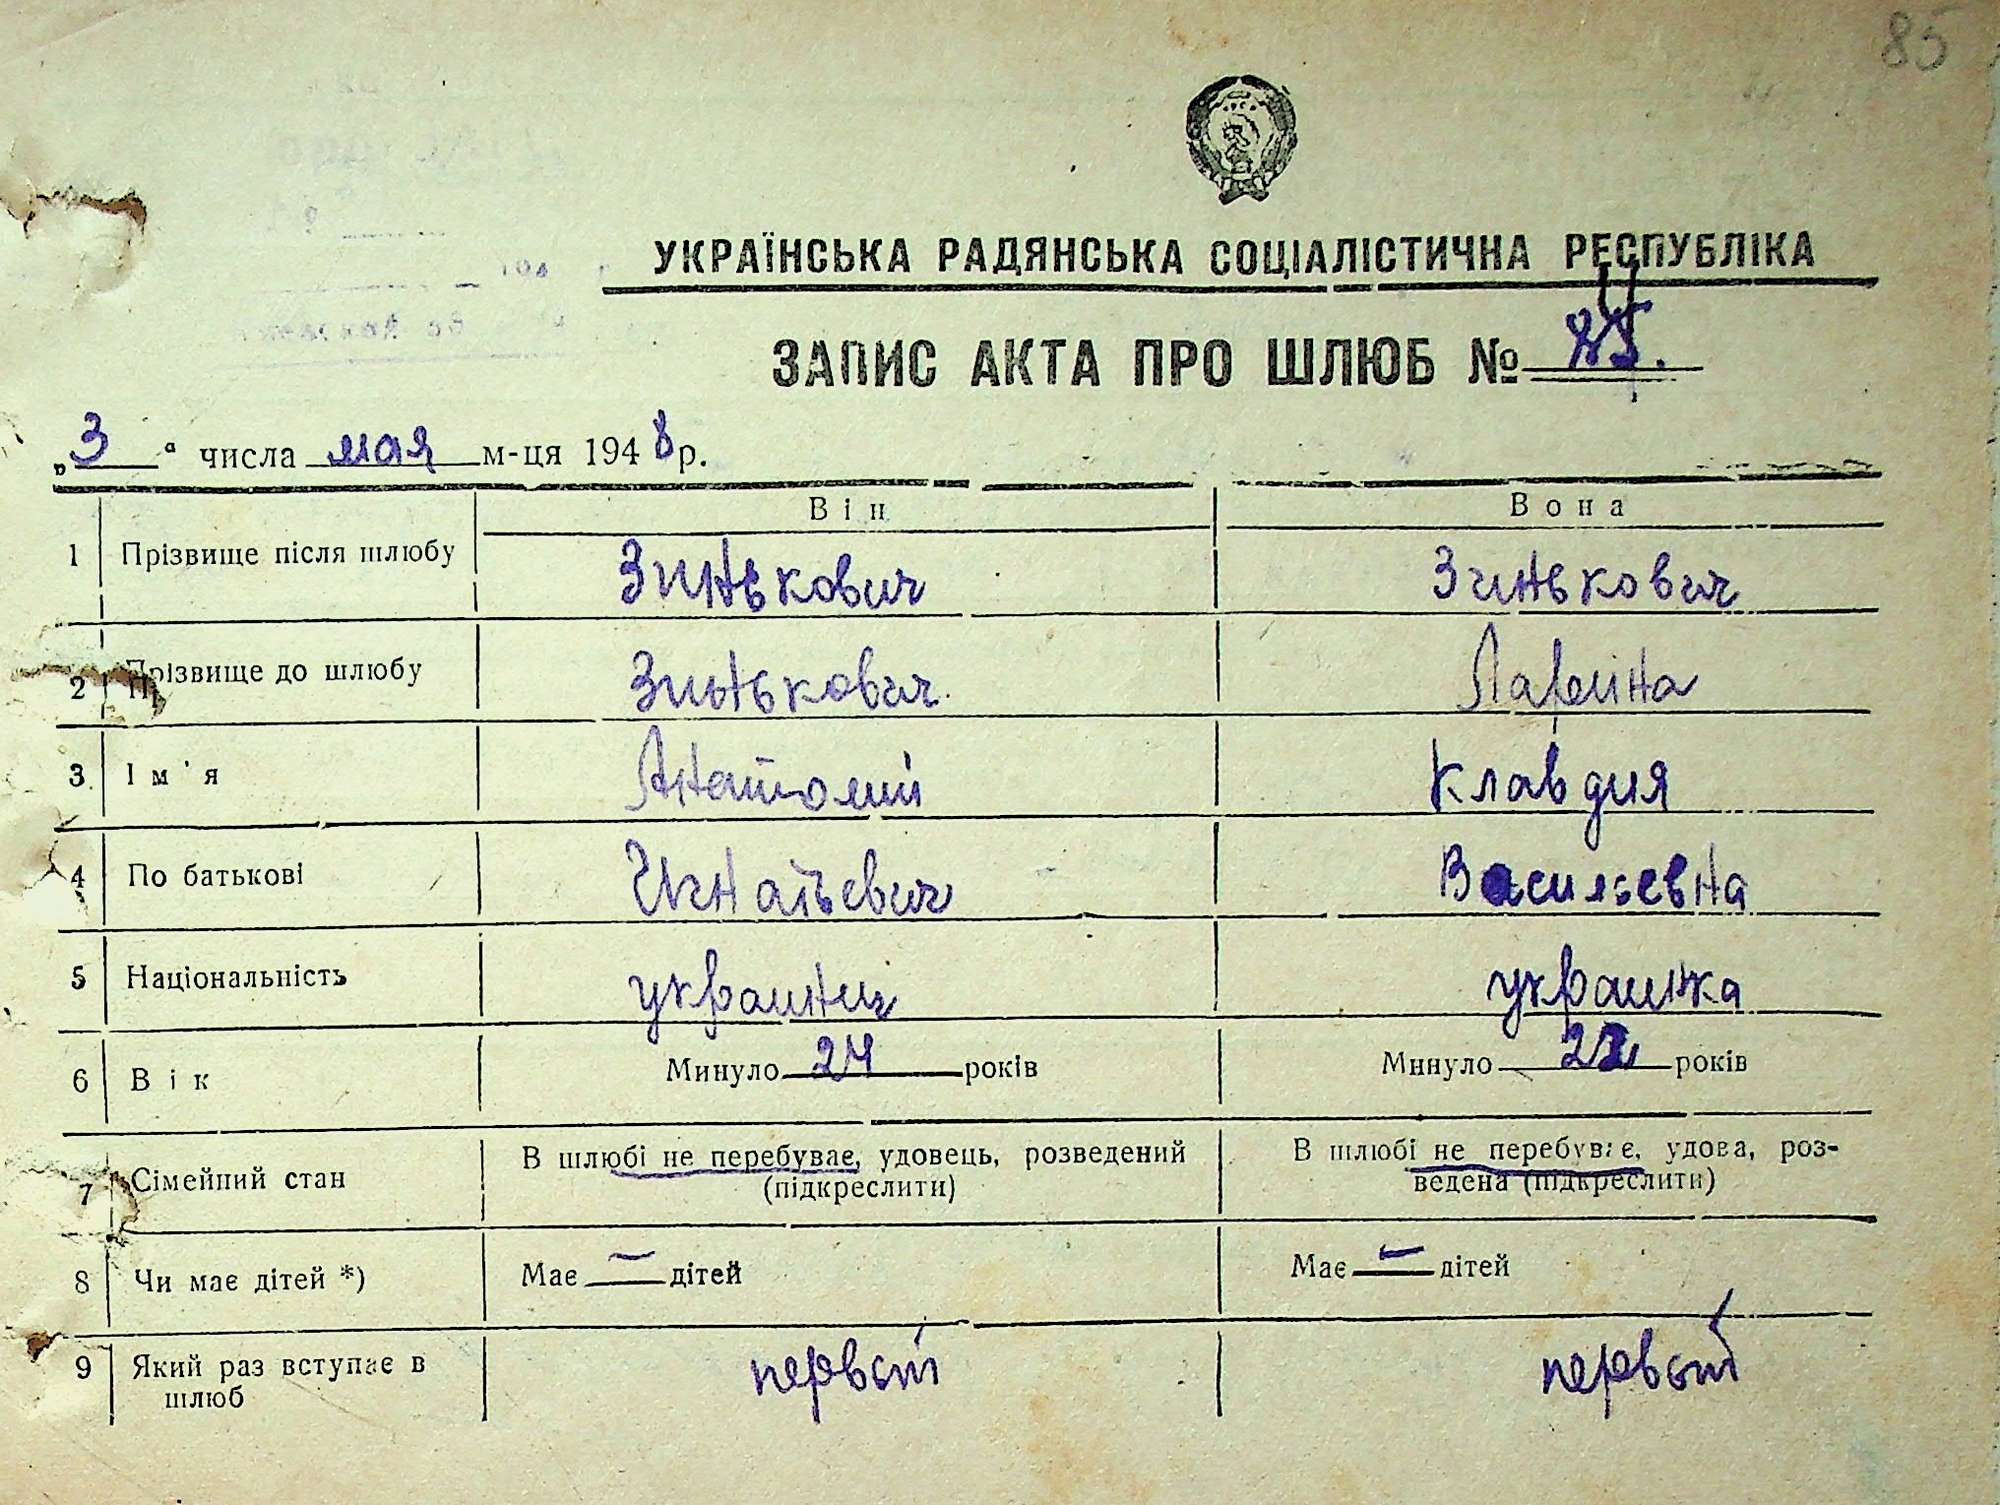 85
УКРАЇНСЬКА РАДЯНСЬКА СОЦІАЛІСТИЧНА РЕСПУБЛІКА
ЗАПИС АКТА ПРО ШЛЮБ №
„3“ числа мая м-ця 1948 р.
Він Вона
1 Прізвище після шлюбу Зинькович Зинькович
2 Прізвище до шлюбу Зинькович Ларина
3 Ім'я Анатолий Клавдия
4 По батькові Игнатьевич Васильевна
5 Національність украинец украинка
6 Вік Минуло 24 років Минуло 22 років
7 Сімейний стан В шлюбі не перебуває, удовець, розведений В шлюбі не перебуває, удова, роз-
(підкреслити) ведена (підкреслити)
8 Чи має дітей *) Має — дітей Має — дітей
9 Який раз вступає в первый первый
шлюб